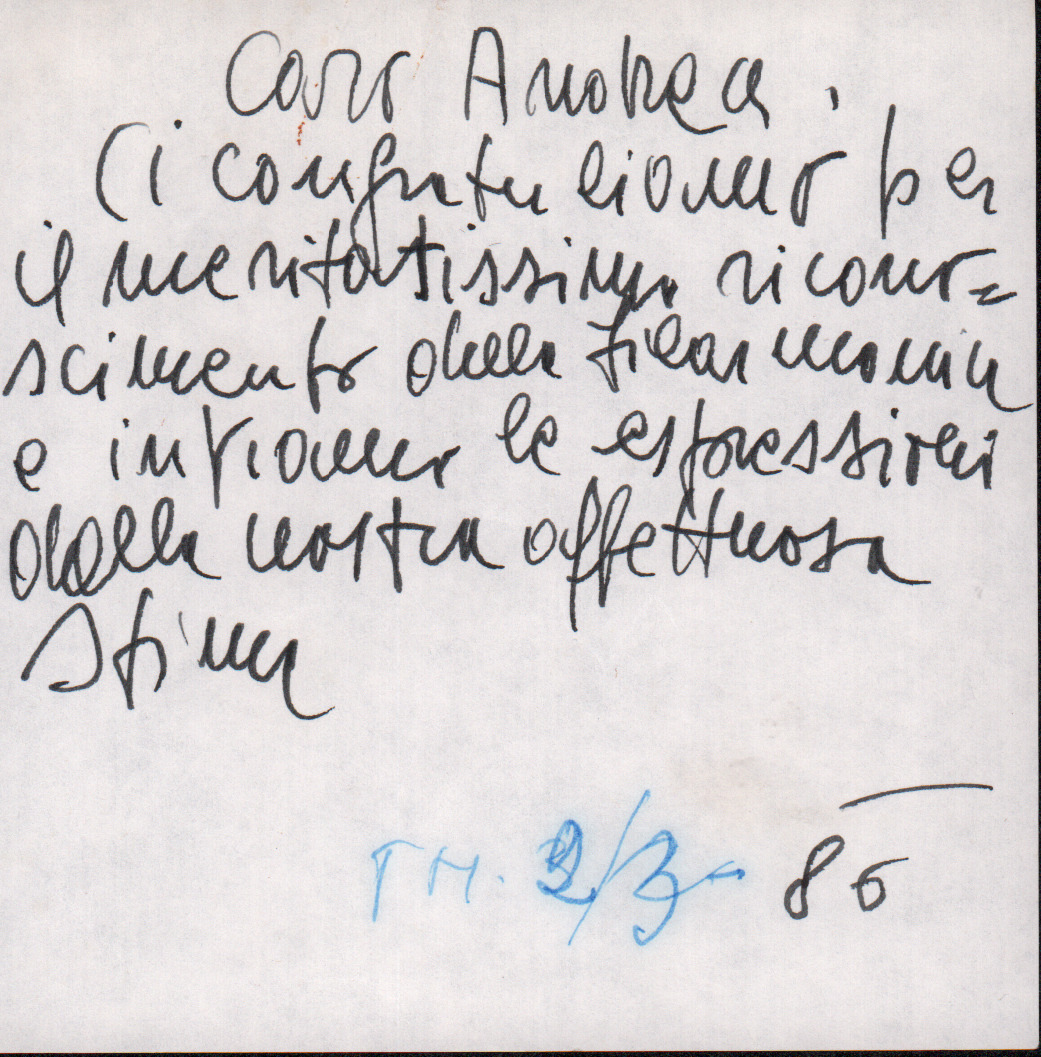 Caro Andrea,
Ci congratuliamo per
il meritatissimo ricono=
scimento della Filarmonica
e inviamo le espressioni
della nostra affettuosa
stima
TM. 2/3 86